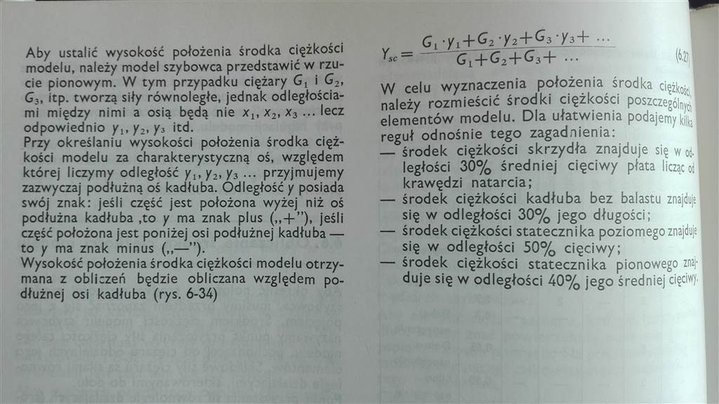 Aby ustalić wysokość położenia środka ciężkości
modelu, należy model szybowca przedstawić w rzu-
cie pionowym. W tym przypadku ciężary G₁ i G₂,
G₃, itp. tworzą siły równoległe, jednak odległościa-
mi między nimi a osią będą nie x₁, x₂, x₃ ... lecz
odpowiednio y₁, y₂, y₃ itd.
Przy określaniu wysokości położenia środka cięż-
kości modelu za charakterystyczną oś, względem
której liczymy odległość y₁, y₂, y₃ ... przyjmujemy
zazwyczaj podłużną oś kadłuba. Odległość y posiada
swój znak: jeśli część jest położona wyżej niż oś
podłużna kadłuba ,to y ma znak plus („+"), jeśli
część położona jest poniżej osi podłużnej kadłuba —
to y ma znak minus („—").
Wysokość położenia środka ciężkości modelu otrzy-
mana z obliczeń będzie obliczana względem po-
dłużnej osi kadłuba (rys. 6-34)
Yₛc = (G₁·y₁+G₂·y₂+G₃·y₃+ ...) / (G₁+G₂+G₃+ ...) (6.27
W celu wyznaczenia położenia środka ciężkości,
należy rozmieścić środki ciężkości poszczególnych
elementów modelu. Dla ułatwienia podajemy kilka
reguł odnośnie tego zagadnienia:
— środek ciężkości skrzydła znajduje się w od-
ległości 30% średniej cięciwy płata licząc od
krawędzi natarcia;
— środek ciężkości kadłuba bez balastu znajduje
się w odległości 30% jego długości;
— środek ciężkości statecznika poziomego znajduje
się w odległości 50% cięciwy;
— środek ciężkości statecznika pionowego znaj-
duje się w odległości 40% jego średniej cięciwy.